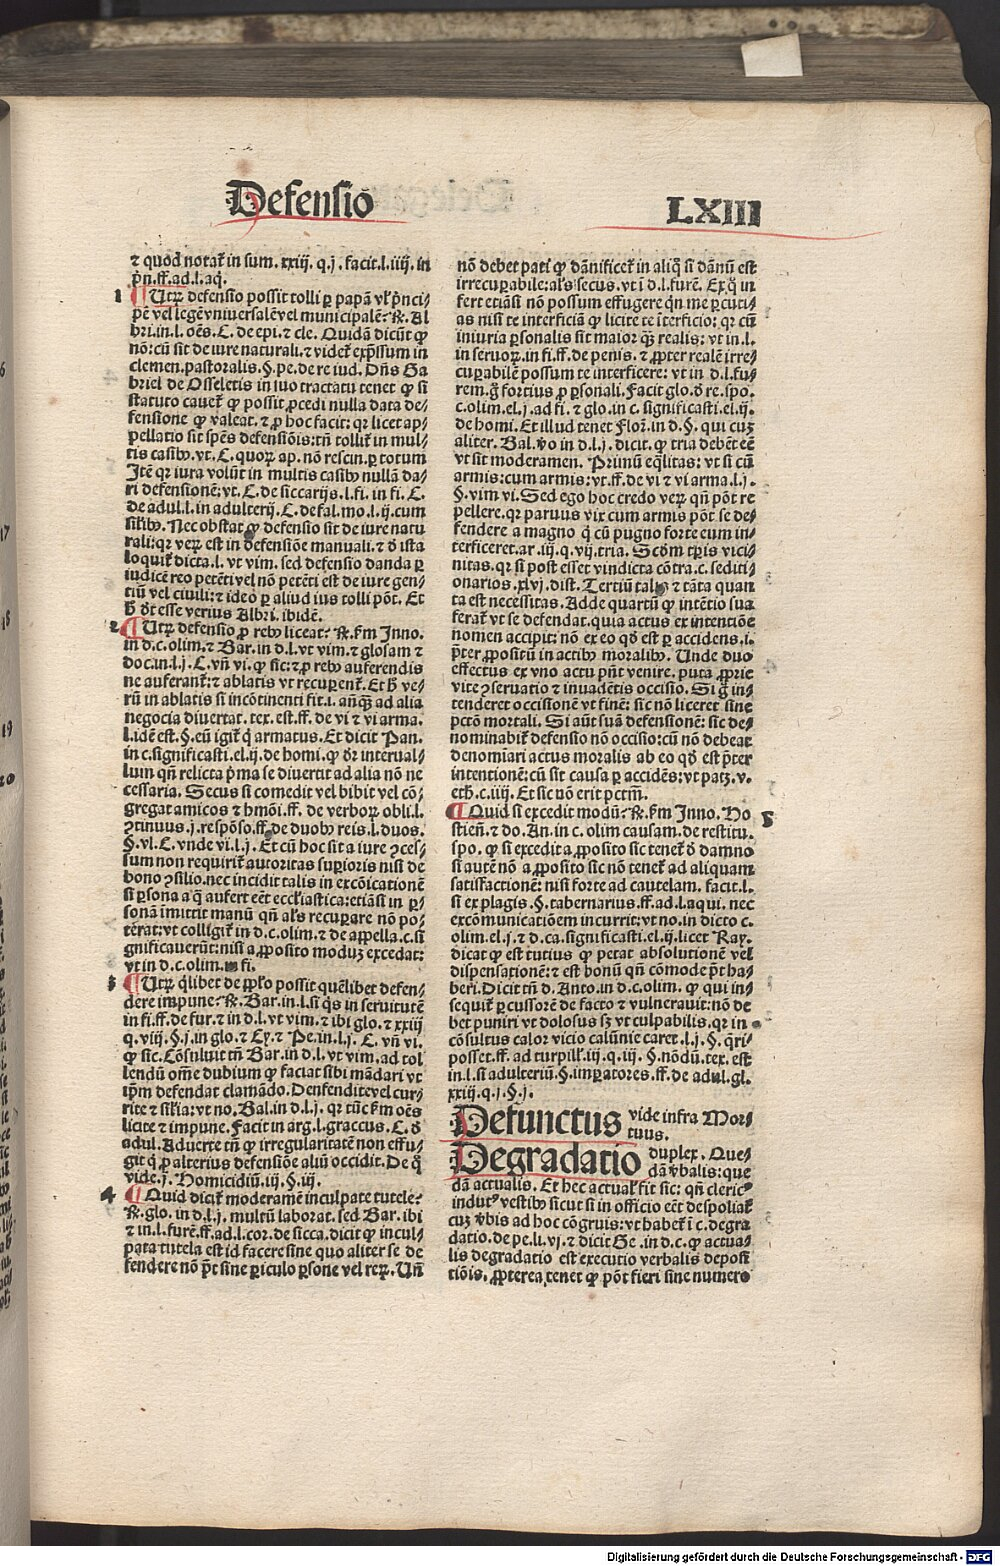 Defensiō
LXIII
⁊ quod notat̄ in sum. xxiij. q. j. facit. l. iiij. in
pn̄. ff. ad. l. aq̄.
1 ¶ Utꝝ defensio possit tolli ꝑ papā vl' pn̄ci⸗
pē vel legē vniversalē vel municipalē? R̄. Al
bri. in. l. oēs. C. de epi. ⁊ cle. Quidā dicūt ꝙ
nō: cū sit de iure naturali. ⁊ videt̄ exp̄ssum in
clemen. pastoralis. §. pe. de re iud. Dn̄s Ga
briel de Osseletis in suo tractatu tenet ꝙ si
statuto cavet̄ ꝙ possit ꝓcedi nulla data de⸗
fensione ꝙ valeat. ⁊ ꝓ hoc facit: qr licet ap⸗
pellatio sit spēs defensiōis: tn̄ tollit̄ in mul⸗
tis casibꝰ. vt. C. quoꝝ ap. nō rescin. ꝑ totum
Itē qr iura volūt in multis casibꝰ nullā da⸗
ri defensionē: vt. C. de siccarijs. l. fi. in fi. C.
de adul. l. in adulterij. C. de fal. mo. l. ij. cum
silibꝰ. Nec obstat ꝙ defensio sit de iure natu
rali: qr veꝝ est in defensiōe manuali. ⁊ d̄ ista
loquit̄ dicta. l. vt vim. sed defensio danda ꝑ
iudicē reo petēti vel nō petēti est de iure gen⸗
tiū vel civili: ⁊ ideo ꝑ aliud ius tolli pōt. Et
h̄ dr̄ esse verius Albri. ibidē.
2 ¶ Utꝝ defensio ꝓ rebꝰ liceat? R̄. fm Inno.
in d. c. olim. ⁊ Bar. in d. l. vt vim. ⁊ glosam ⁊
doc. in. l. j. C. vn̄ vi. ꝙ sic: ⁊ ꝓ rebꝰ auferendis
ne auferant̄: ⁊ ablatis vt recuꝑent̄. Et h̄ ve⸗
rū in ablatis si incōtinenti fit. i. anq̄ꝫ ad alia
negocia divertat. tex. est. ff. de vi ⁊ vi arma.
l. idē est. §. eū igit̄ q̄ armatus. Et dicit Pan.
in c. significasti. el. ij. de homi. ꝙ dr̄ interual⸗
lum qn̄ relicta p̄ma se divertit ad alia nō ne
cessaria. Secus si comedit vel bibit vel cō⸗
gregat amicos ⁊ hmōi. ff. de verboꝝ obli. l.
ꝯtinuus. j. respōso. ff. de duobꝰ reis. l. duos.
§. vl. C. vnde vi. l. j. Et cū hoc sit a iure ꝯces⸗
sum non requirit̄ autoritas suꝑioris nisi de
bono ꝯsilio. nec incidit talis in excōicationē
si ꝑsona a q̄ aufert eēt eccl'iastica: etiāsi in ꝑ⸗
sonā imittit manū qn̄ al's recuꝑare nō po⸗
terat: vt colligit̄ in d. c. olim. ⁊ de appella. c. si
gnificaverūt: nisi a ꝓposito moduꝫ excedat:
vt in d. c. olim. in fi.
3 ¶ Utꝝ q̄libet de pplo possit quēlibet defen⸗
dere impune? R̄. Bar. in. l. si q̄s in servitutē
in fi. ff. de fur. ⁊ in d. l. vt vim. ⁊ ibi glo. ⁊ xxiij
q. viij. §. j. in glo. ⁊ Cy. ⁊ Pe. in. l. j. C. vn̄ vi.
ꝙ sic. Cōsuluit tn̄ Bar. in d. l. vt vim. ad tol
lendū omē dubium ꝙ faciat sibi mādari vt
ip̄m defendat clamādo. Denfendite vel cur⸗
rite ⁊ sil'ia: vt no. Bal. in d. l. j. qr tūc fm oēs
licite ⁊ impune. Facit in arg. l. graccus. C. d̄
adul. Adverte tn̄ ꝙ irregularitatē non effu⸗
git q̄ ꝓ alterius defensiōe aliū occidit. De q̄
vide. j. Homicidiū. iij. §. iij.
4 ¶ Quid dicit̄ moderamē inculpate tutele?
R̄. glo. in d. l. j. multū laborat. sed Bar. ibi
⁊ in. l. furē. ff. ad. l. cor. de sicca. dicit ꝙ incul⸗
pata tutela est id facere sine quo aliter se de
fendere nō pt̄ sine ꝑiculo ꝑsone vel reꝝ. Un̄
nō debet pati ꝙ dānificet̄ in aliq̄ si dānū est
irrecuꝑabile: al's secus. vt ī d. l. furē. Ex q̄ in
fert etiāsi nō possum effugere qn̄ me ꝑcuti⸗
as nisi te interficiā ꝙ licite te īterficio: qr cū
iniuria ꝑsonalis sit maior q̄ꝫ realis: vt in. l.
in servoꝝ. in fi. ff. de penis. ⁊ ꝓpter realē irre⸗
cuꝑabilē possum te interficere: vt in d. l. fu⸗
rem. g̊ fortius ꝓ ꝑsonali. Facit glo. d̄ re. spo.
c. olim. el. j. ad fi. ⁊ glo. in c. significasti. el. ij.
de homi. Et illud tenet Flor̄. in d. §. qui cuꝫ
aliter. Bal. v̊o in d. l. j. dicit. ꝙ tria debēt eē
vt sit moderamen. Primū eq̄litas: vt si cū
armis: cum armis: vt. ff. de vi ⁊ vi arma. l. j.
§. vim vi. Sed ego hoc credo veꝝ qn̄ pōt re
pellere. qr parvus vix cum armis pōt se de⸗
fendere a magno q̄ cū pugno forte eum in⸗
terficeret. ar. iij. q. vij. tria. Scdm tp̄ris vici⸗
nitas. qr si post esset vindicta cōtra. c. sediti⸗
onarios. xlvj. dist. Tertiū talis ⁊ tāta quan
ta est necessitas. Adde quartū ꝙ intētio sua
ferat̄ vt se defendat. quia actus ex intentiōe
nomen accipit: nō ex eo qd̄ est ꝑ accidens. i.
p̄ter ꝓpositū in actibꝰ moralibꝰ. Unde duo
effectus ex vno actu pn̄t venire. puta ꝓprie
vite ꝯservatio ⁊ invadētis occisio. Si g̊ in⸗
tenderet occisionē vt finē: sic nō liceret sine
pctō mortali. Si aūt suā defensionē: sic de⸗
nominabit̄ defensio nō occisio: cū nō debeat
denomiari actus moralis ab eo qd̄ est p̄ter
intentionē: cū sit causa ꝑ accidēs: vt patꝫ. v.
eth. c. iiij. Et sic nō erit pctm̄.
¶ Quid si excedit modū? R̄. fm Inno. Ho 5
stien̄. ⁊ do. An. in c. olim causam. de restitu.
spo. ꝙ si excedit a ꝓposito sic tenet̄ d̄ damno
si autē nō a ꝓposito sic nō tenet̄ ad aliquam
satisfactionē: nisi forte ad cautelam. facit. l.
si ex plagis. §. tabernarius. ff. ad. l. aqui. nec
excōmunicatiōem incurrit: vt no. in dicto c.
olim. el. j. ⁊ d. ca. significasti. el. ij. licet Ray.
dicat ꝙ est tutius ꝙ petat absolutionē vel
dispensationē: ⁊ est bonū qn̄ cōmode pt̄ ha⸗
beri. Dicit tn̄ d. Anto. in d. c. olim. ꝙ qui in⸗
sequit̄ ꝑcussorē de facto ⁊ vulneravit: nō de
bet puniri vt dolosus sꝫ vt culpabilis. qr in⸗
cōsultus calor vicio calūnie caret. l. j. §. q̄ri⸗
posset. ff. ad turpill'. iij. q. iij. §. nōdū. tex. est
in. l. si adulteriū. §. imꝑatores. ff. de adul. gl.
xxiij. q. j. §. j.
Defunctus vide infra Mor⸗
tuus.
Degradatio duplex. Que⸗
dā v̄balis: que
dā actualis. Et hec actual' fit sic: qn̄ clericꝰ
indutꝰ vestibꝰ sicut si in officio eēt despoliat̄
cuꝫ v̄bis ad hoc cōgruis: vt habet̄ ī c. degra
datio. de pe. li. vj. ⁊ dicit Ge. in d. c. ꝙ actua⸗
lis degradatio est executio verbalis deposi
tiōis. ꝓpterea tenet ꝙ pōt fieri sine numero
Digitalisierung gefördert durch die Deutsche Forschungsgemeinschaft - DFG